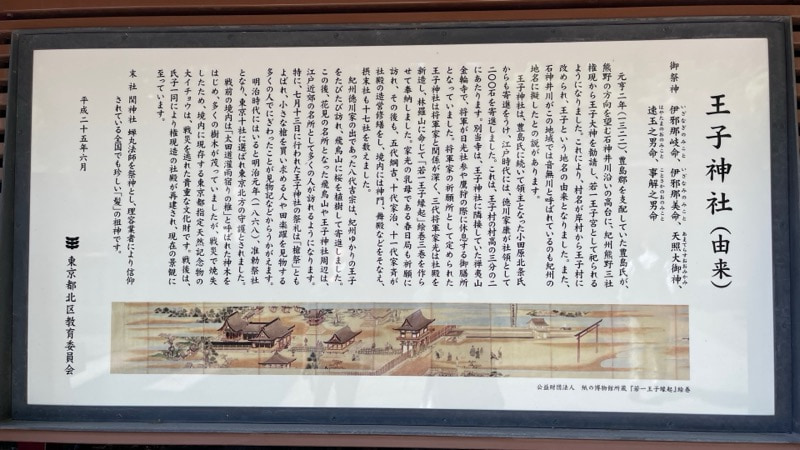 王子神社（由来）
御祭神　伊邪那岐命、伊邪那美命、天照大御神、
速玉之男命、事解之男命
元亨二年（一三二二）、豊島郡を支配していた豊島氏が、
熊野の方向を望む石神井川沿いの高台に、紀州熊野三社
権現から王子大神を勧請し、若一王子宮として祀られる
ようになりました。これにより、村名が岸村から王子村に
改められ、王子という地名の由来となりました。また、
石神井川がこの地域では音無川と呼ばれているのも紀州の
地名に擬したとの説があります。
王子神社は、豊島氏に続いて領主となった小田原北条氏
からも寄進をうけ、江戸時代には、徳川家康が社領として
二〇〇石を寄進しました。これは、王子村の村高の三分の二
にあたります。別当寺は、王子神社に隣接していた禅夷山
金輪寺で、将軍が日光社参や鷹狩の際に休息する御膳所
となっていました。将軍家の祈願所として定められた
王子神社は将軍家と関係が深く、三代将軍家光は社殿を
新造し、林羅山に命じて「若一王子縁起」絵巻三巻を作ら
せて奉納しました。家光の乳母である春日局も祈願に
訪れ、その後も、五代綱吉、十代家治、十一代家斉が
社殿の造営修繕をし、境内には神門、舞殿などをそなえ、
摂末社も十七社を数えました。
紀州徳川家の出であった八代吉宗は、紀州ゆかりの王子
をたびたび訪れ、飛鳥山に桜を植樹して寄進しました。
この後、花見の名所となった飛鳥山や王子神社周辺は、
江戸近郊の名所として多くの人が訪れるようになります。
特に、七月十三日に行われた王子神社の祭礼は「槍祭」とも
よばれ、小さな槍を買い求める人や田楽躍を見物する
多くの人でにぎわったことが見物記などからうかがえます。
明治時代にはいると明治元年（一八六八）、准勅祭社
となり、東京十社に選ばれ東京北方の守護とされました。
戦前の境内は「太田道灌雨宿りの椎」と呼ばれた神木を
はじめ、多くの樹木が茂っていましたが、戦災で焼失
したため、境内に現存する東京都指定天然記念物の
大イチョウは、戦災を逃れた貴重な文化財です。戦後は、
氏子一同により権現造の社殿が再建され、現在の景観に
至っています。
末社　関神社　蝉丸法師を祭神とし、理容業者により信仰
されている全国でも珍しい「髪」の祖神です。
平成二十五年六月
東京都北区教育委員会
公益財団法人　紙の博物館所蔵『若一王子縁起』絵巻